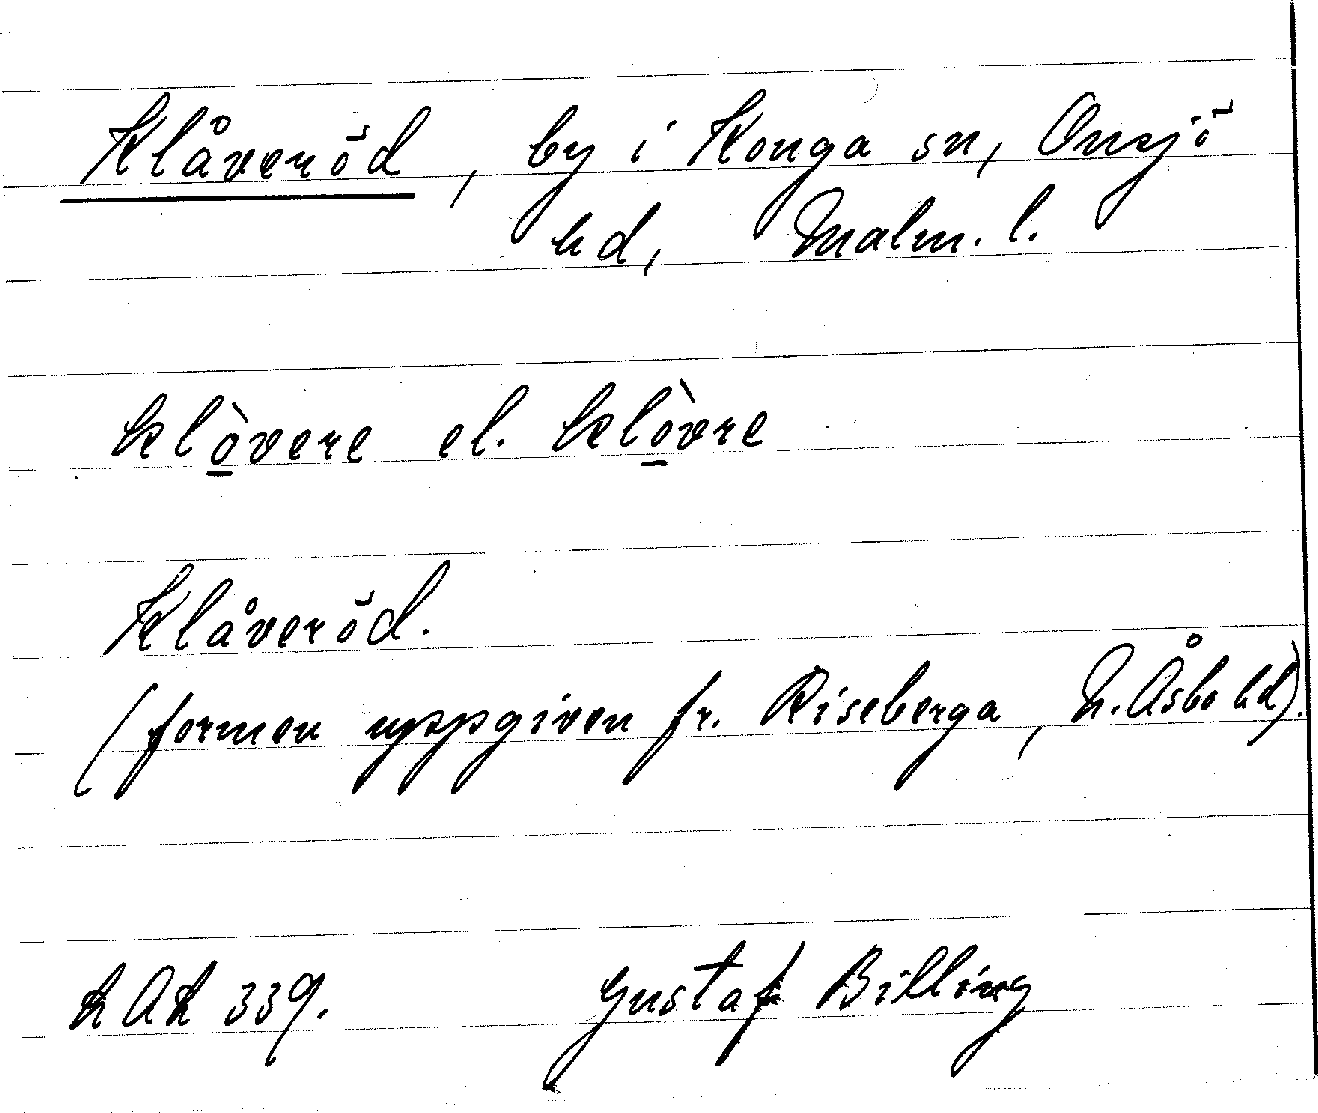 Klåveröd, by i Konga sn, Onsjö
hd, Malm. l.
klò̱vere el. klò̱vre
Klåveröd.
(formen uppgiven fr. Riseberga, N. Åsbo hd).
LAL 339. Gustaf Billing